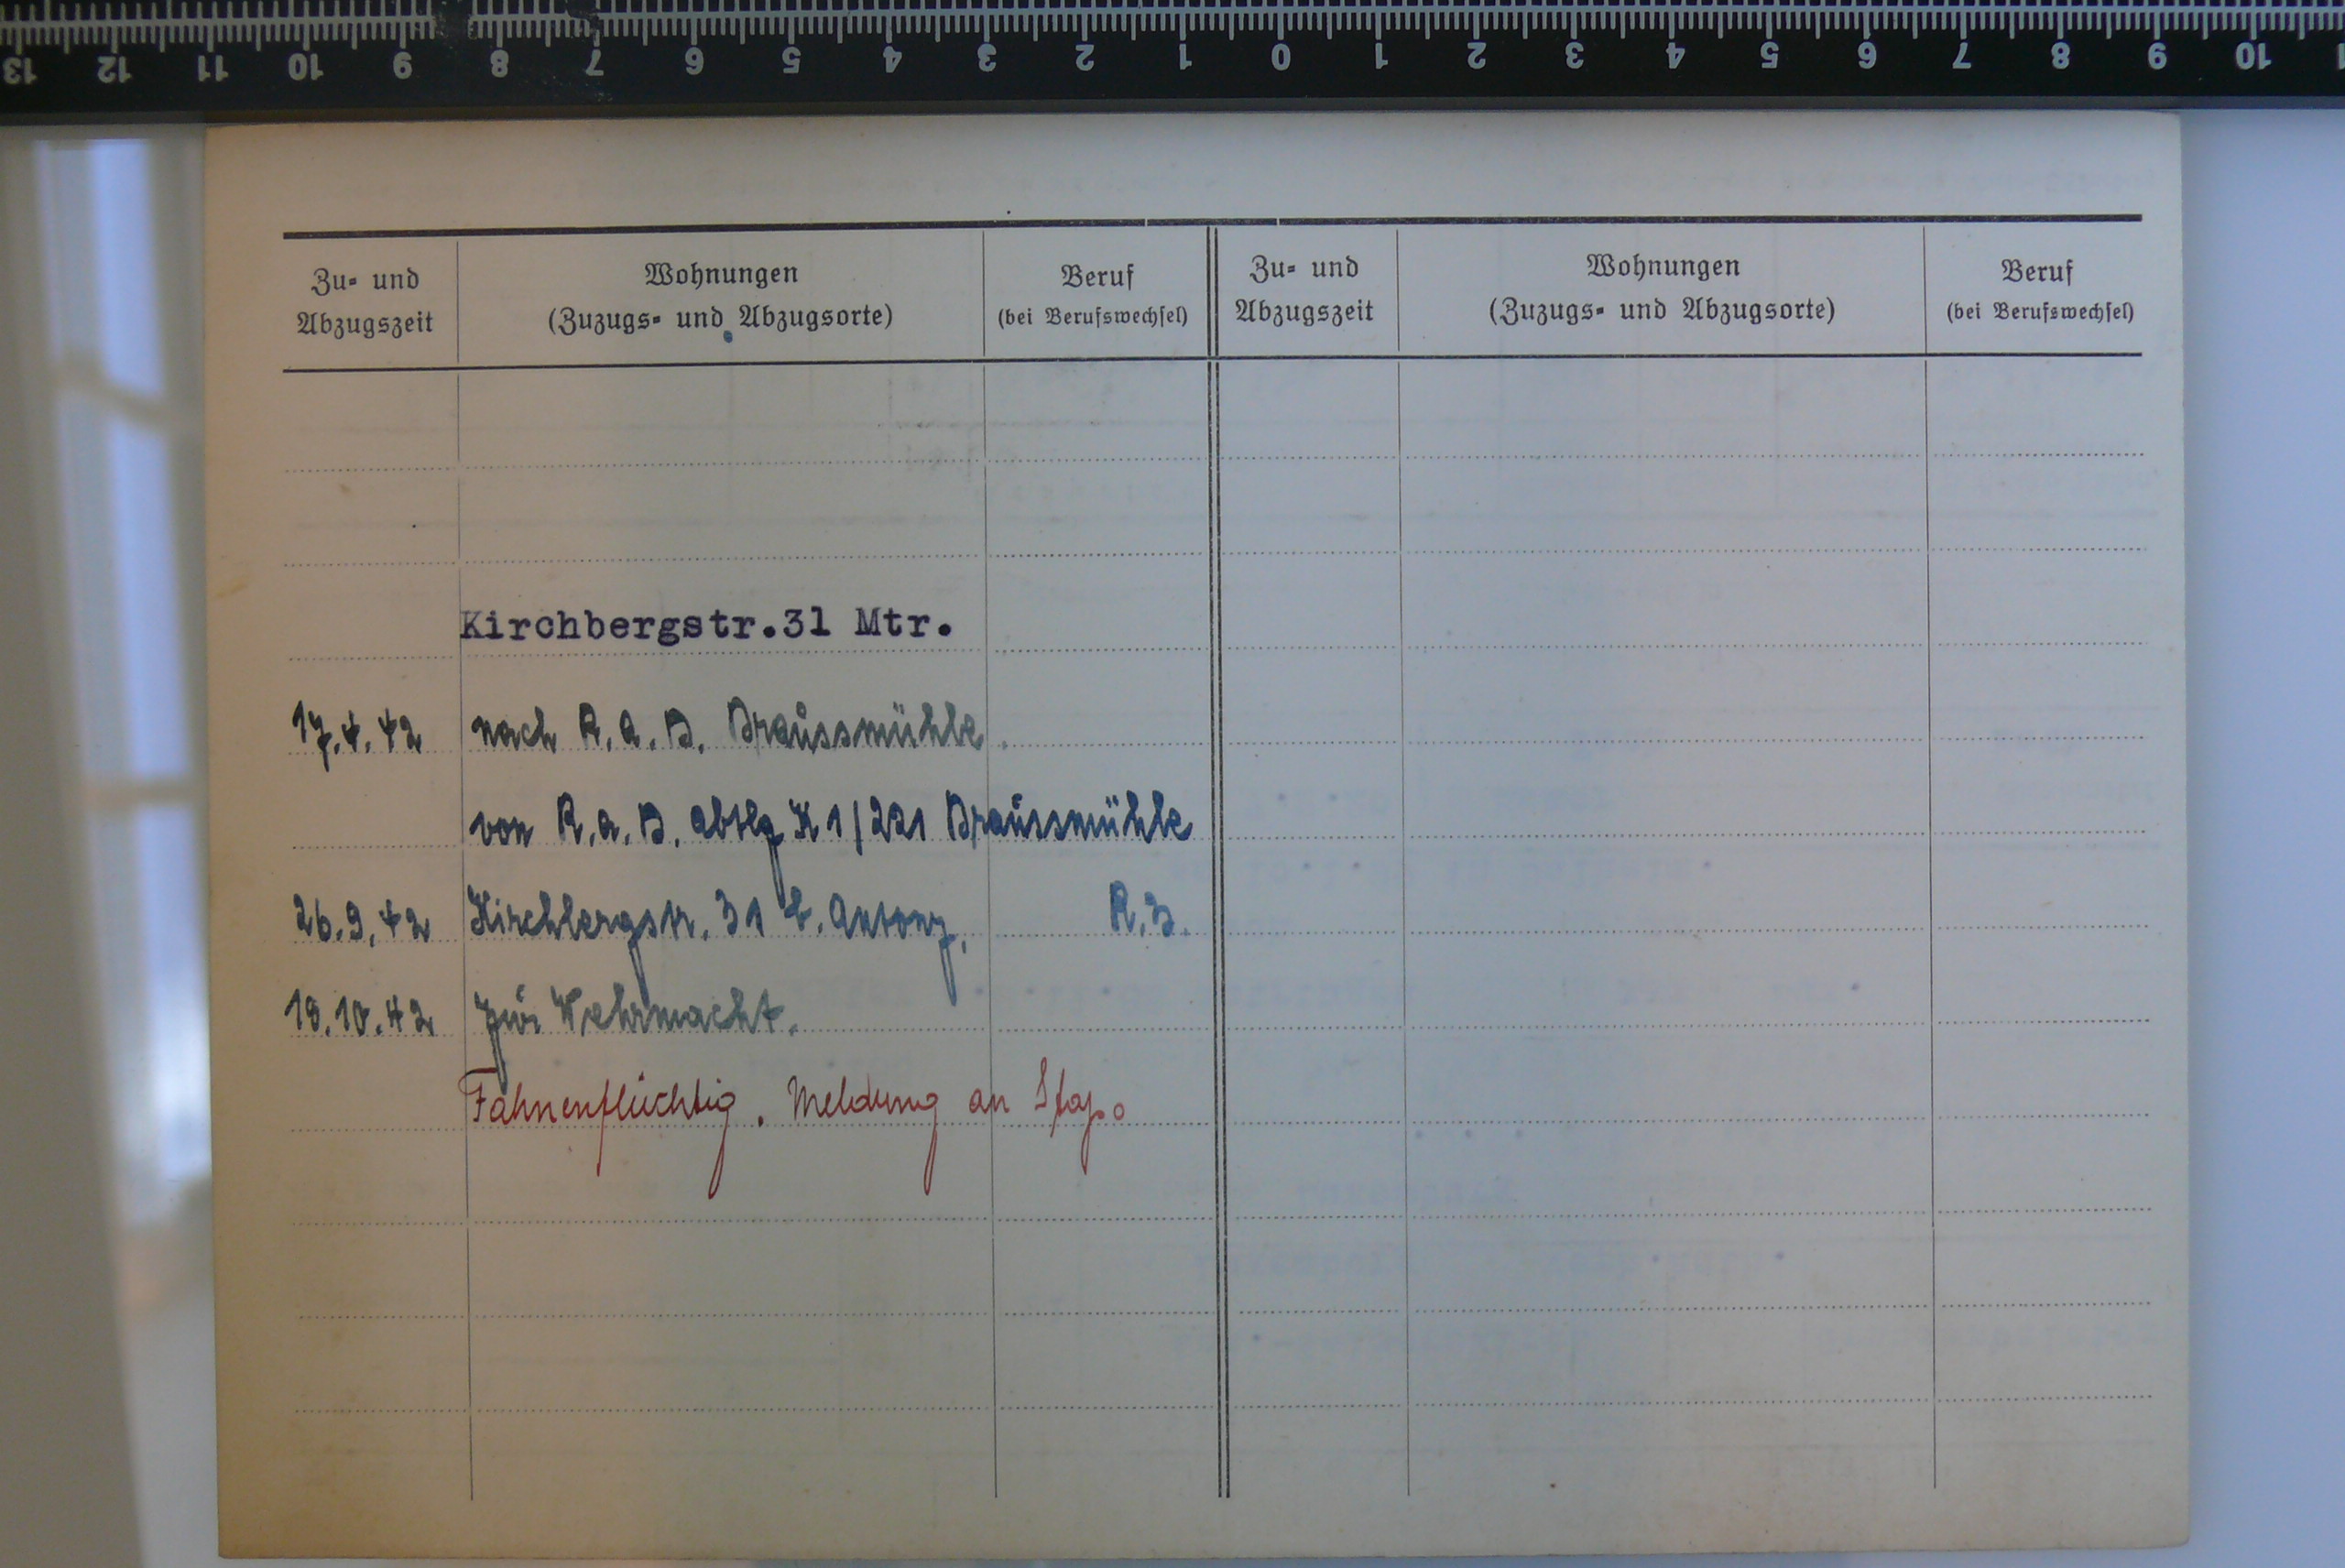 13 12 11 10 9 8 7 6 5 4 3 2 1 0 1 2 3 4 5 6 7 8 9 10
Zu- und Abzugszeit
Wohnungen
(Zuzugs- und Abzugsorte)
Beruf
(bei Berufswechsel)
Zu- und Abzugszeit
Wohnungen
(Zuzugs- und Abzugsorte)
Beruf
(bei Berufswechsel)
Kirchbergstr.31 Mtr.
17.4.42 nach R.A.D. Braussmühle.
von R.A.D. Abtlg K 1/221 Braussmühle
26.9.42 Kirchbergstr. 31 b. Antony, R.B.
18.10.42 zur Wehrmacht.
Fahnenflüchtig. Meldung an Stapo